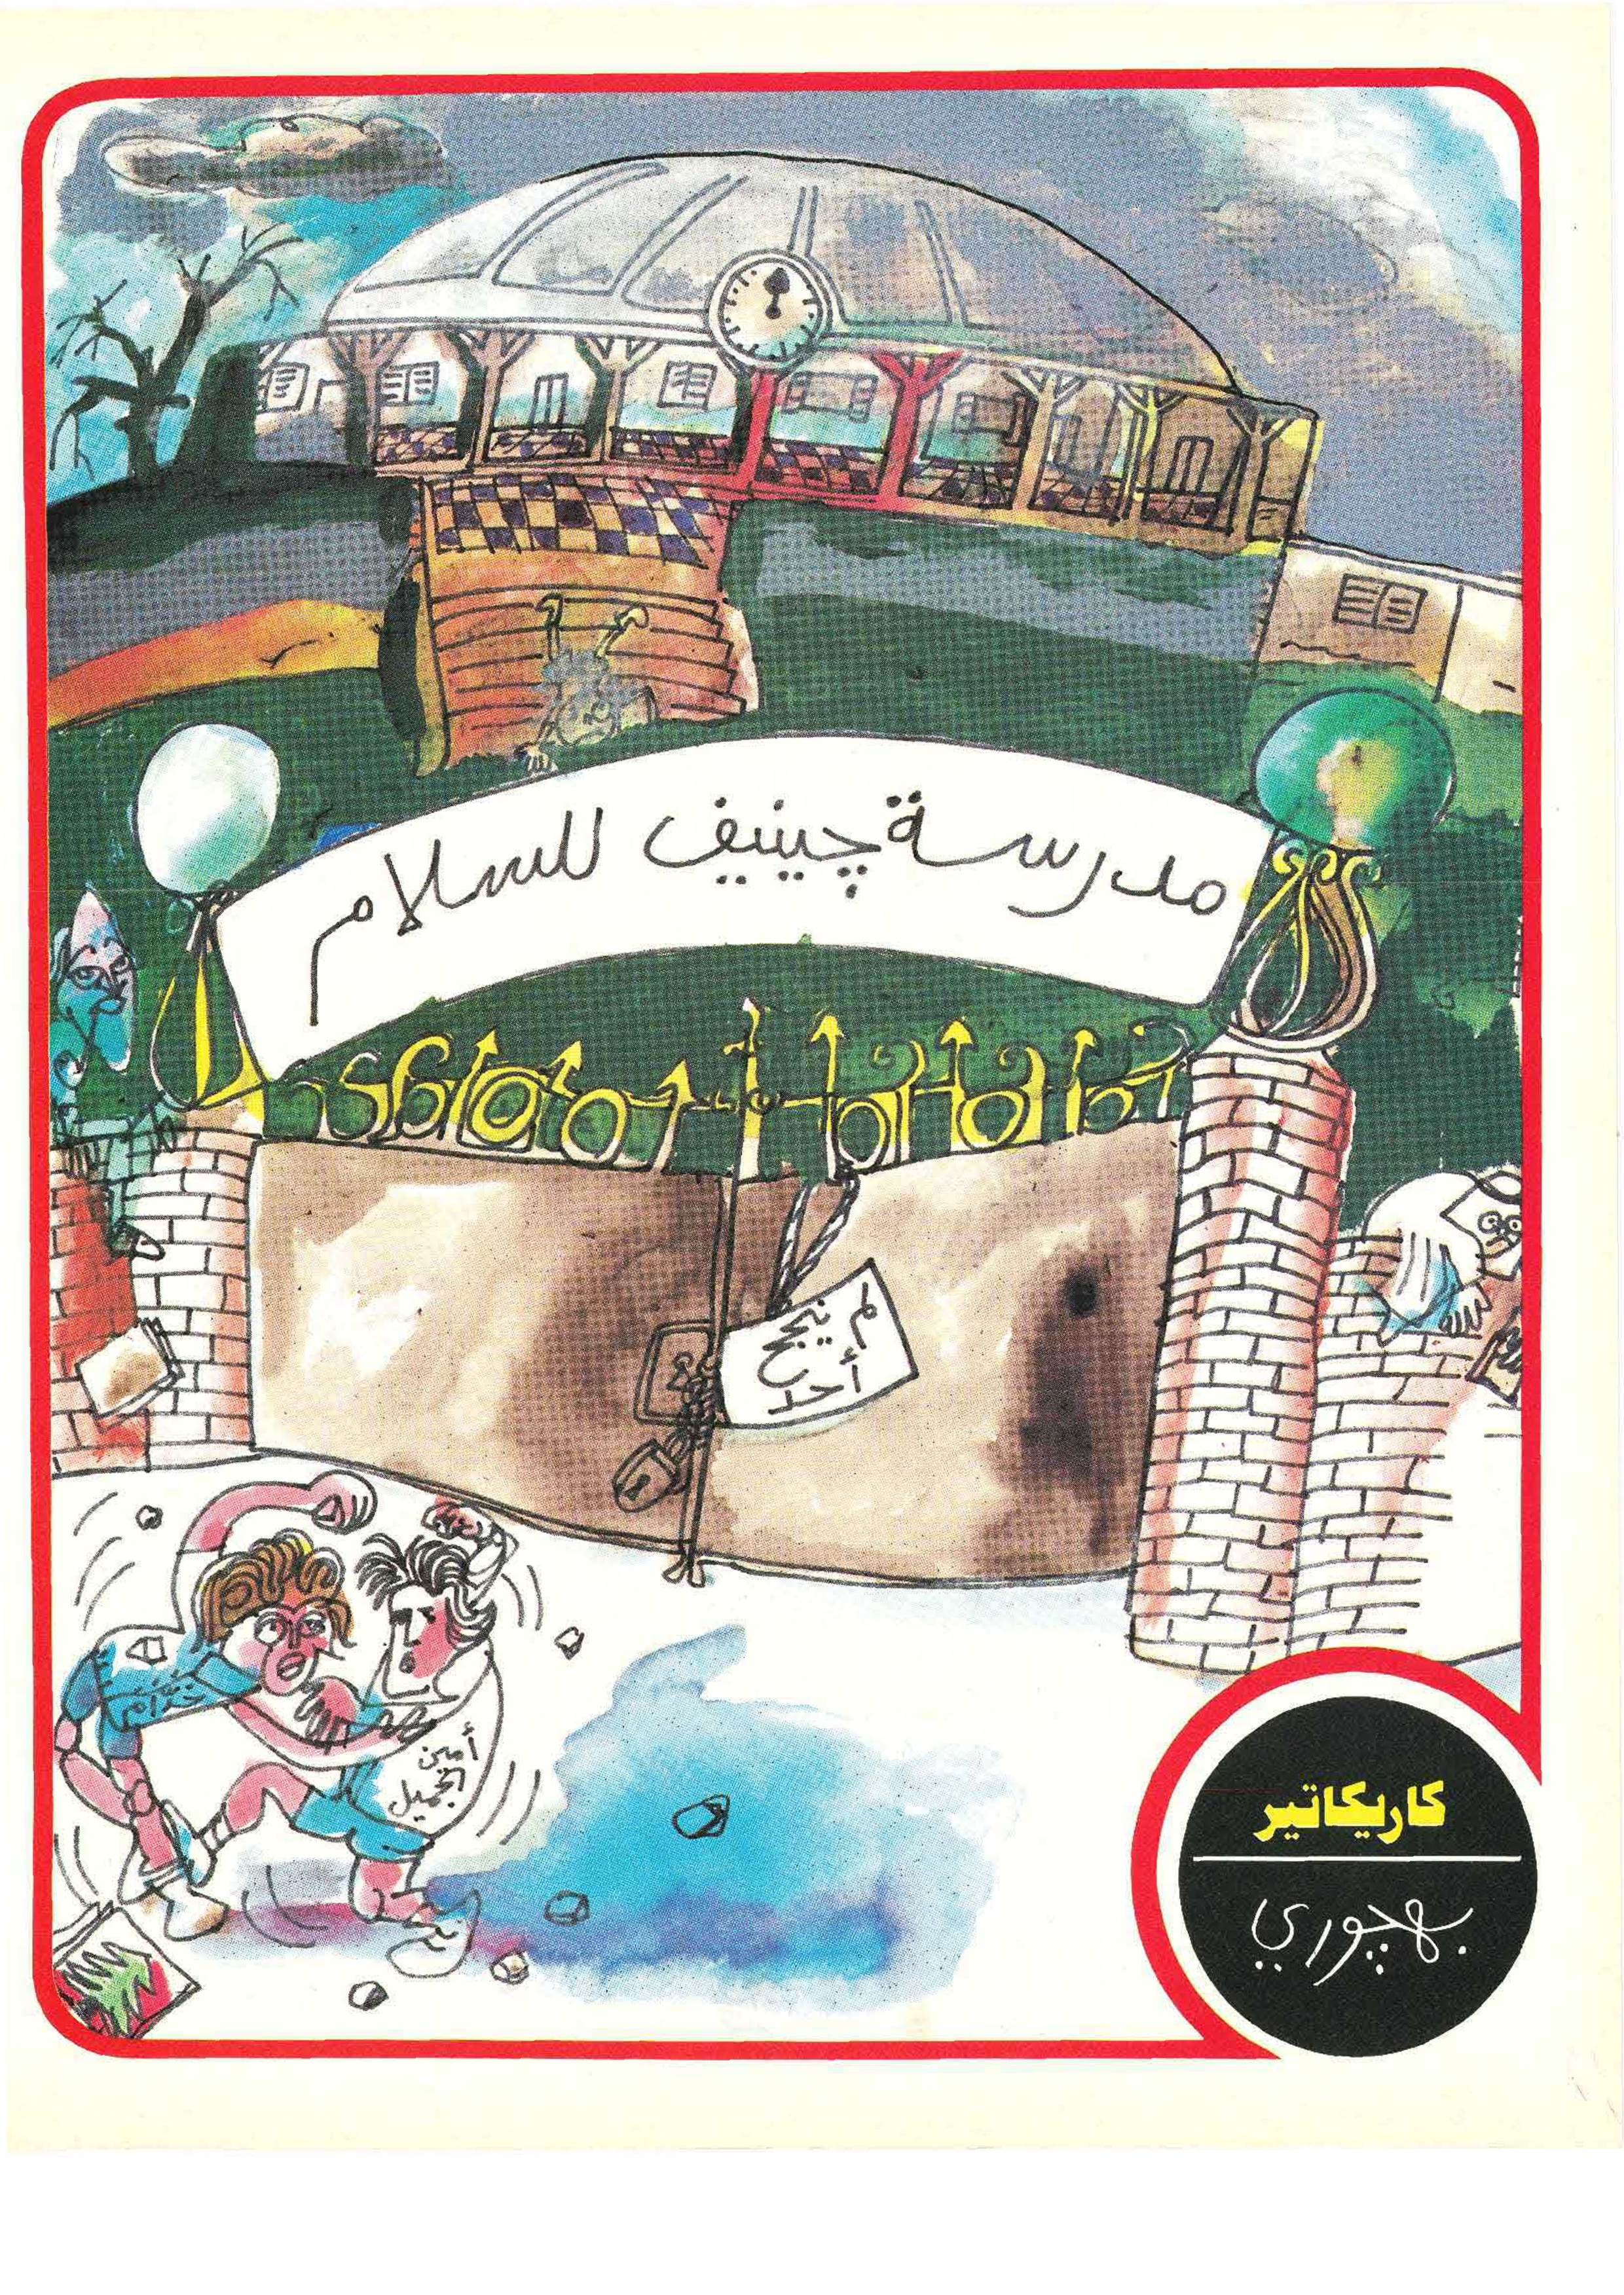 مدرسة چينيف للسلام
لم ينجح
أحد
خدام
أمين
الجميل
كاريكاتير
بهجوري